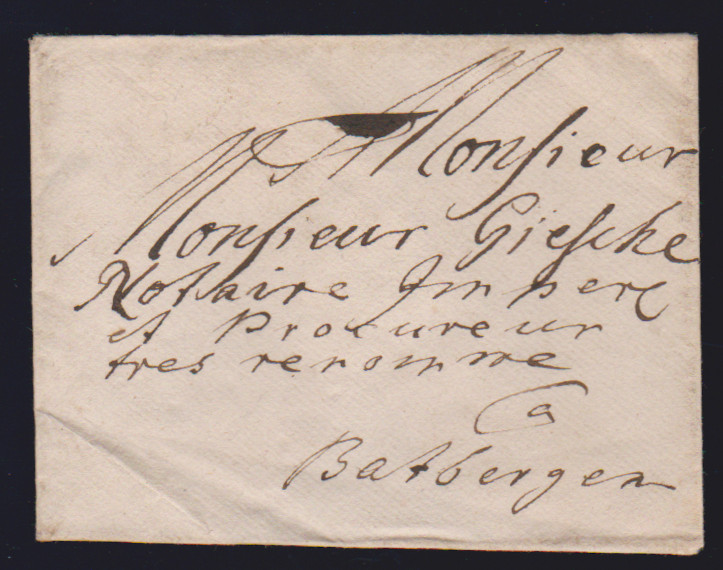 A Monsieur
Monsieur Giesche
Notaire Imperl
et Procureur
tres renomme
a
Batbergen